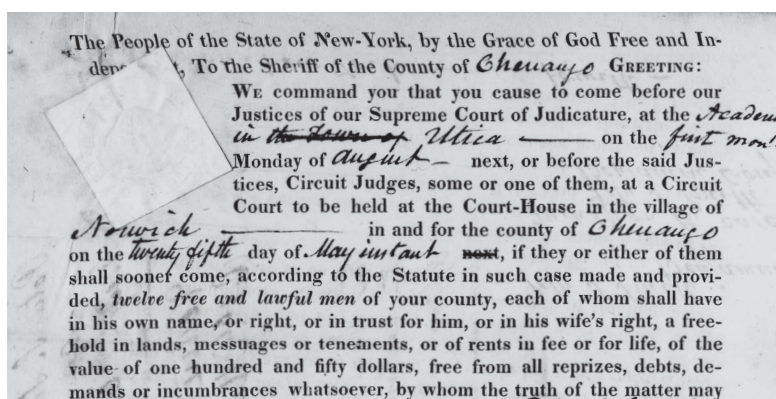 The People of the State of New-York, by the Grace of God Free and In-
depe t, To the Sheriff of the County of Chenango GREETING:
WE command you that you cause to come before our
Justices of our Supreme Court of Judicature, at the Academ
in the Town of Utica on the first mon
Monday of August next, or before the said Jus-
tices, Circuit Judges, some or one of them, at a Circuit
Court to be held at the Court-House in the village of
Norwich in and for the county of Chenango
on the twenty fifth day of May instant next, if they or either of them
shall sooner come, according to the Statute in such case made and provi-
ded, twelve free and lawful men of your county, each of whom shall have
in his own name, or right, or in trust for him, or in his wife's right, a free-
hold in lands, messuages or tenements, or of rents in fee or for life, of the
value of one hundred and fifty dollars, free from all reprizes, debts, de-
mands or incumbrances whatsoever, by whom the truth of the matter may